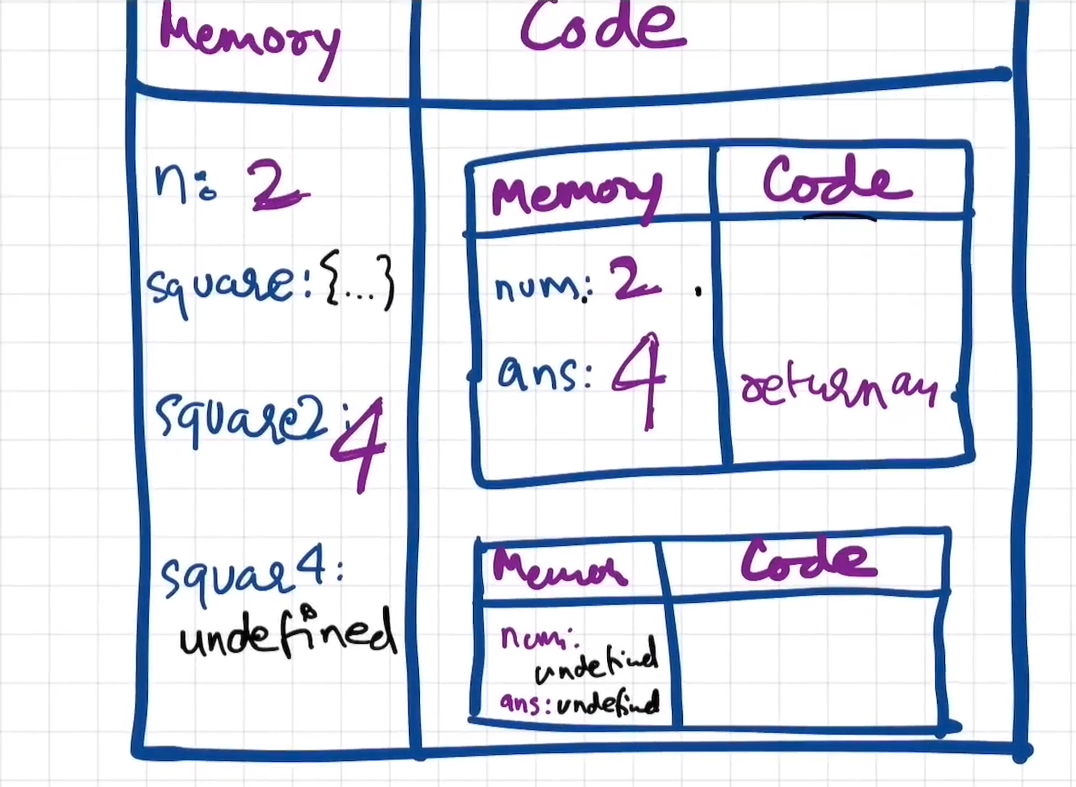 Memory
Code
n: 2
square: {...}
square2: 4
squar4:
undefined
Memory
Code
num: 2
ans: 4
return an
Memor
Code
num:
undefind
ans: undefind